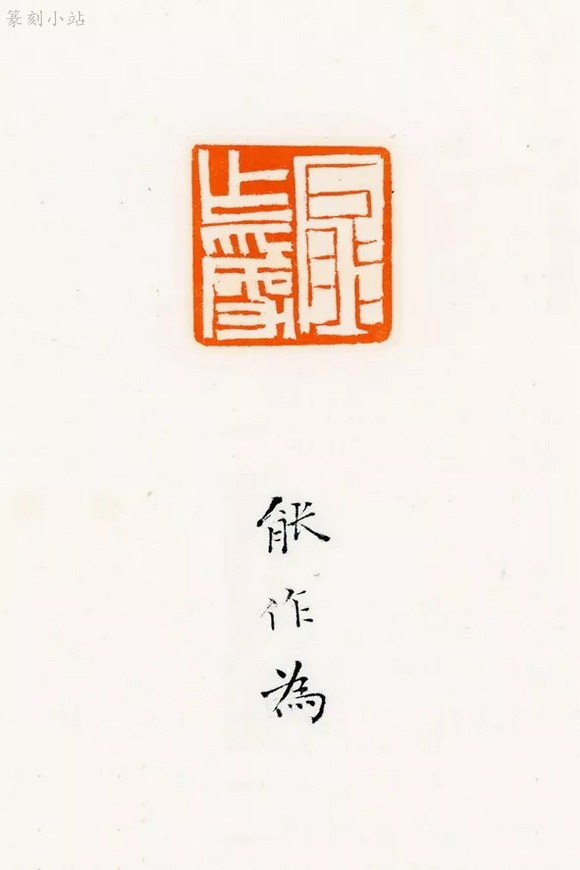 篆刻小站
能作為